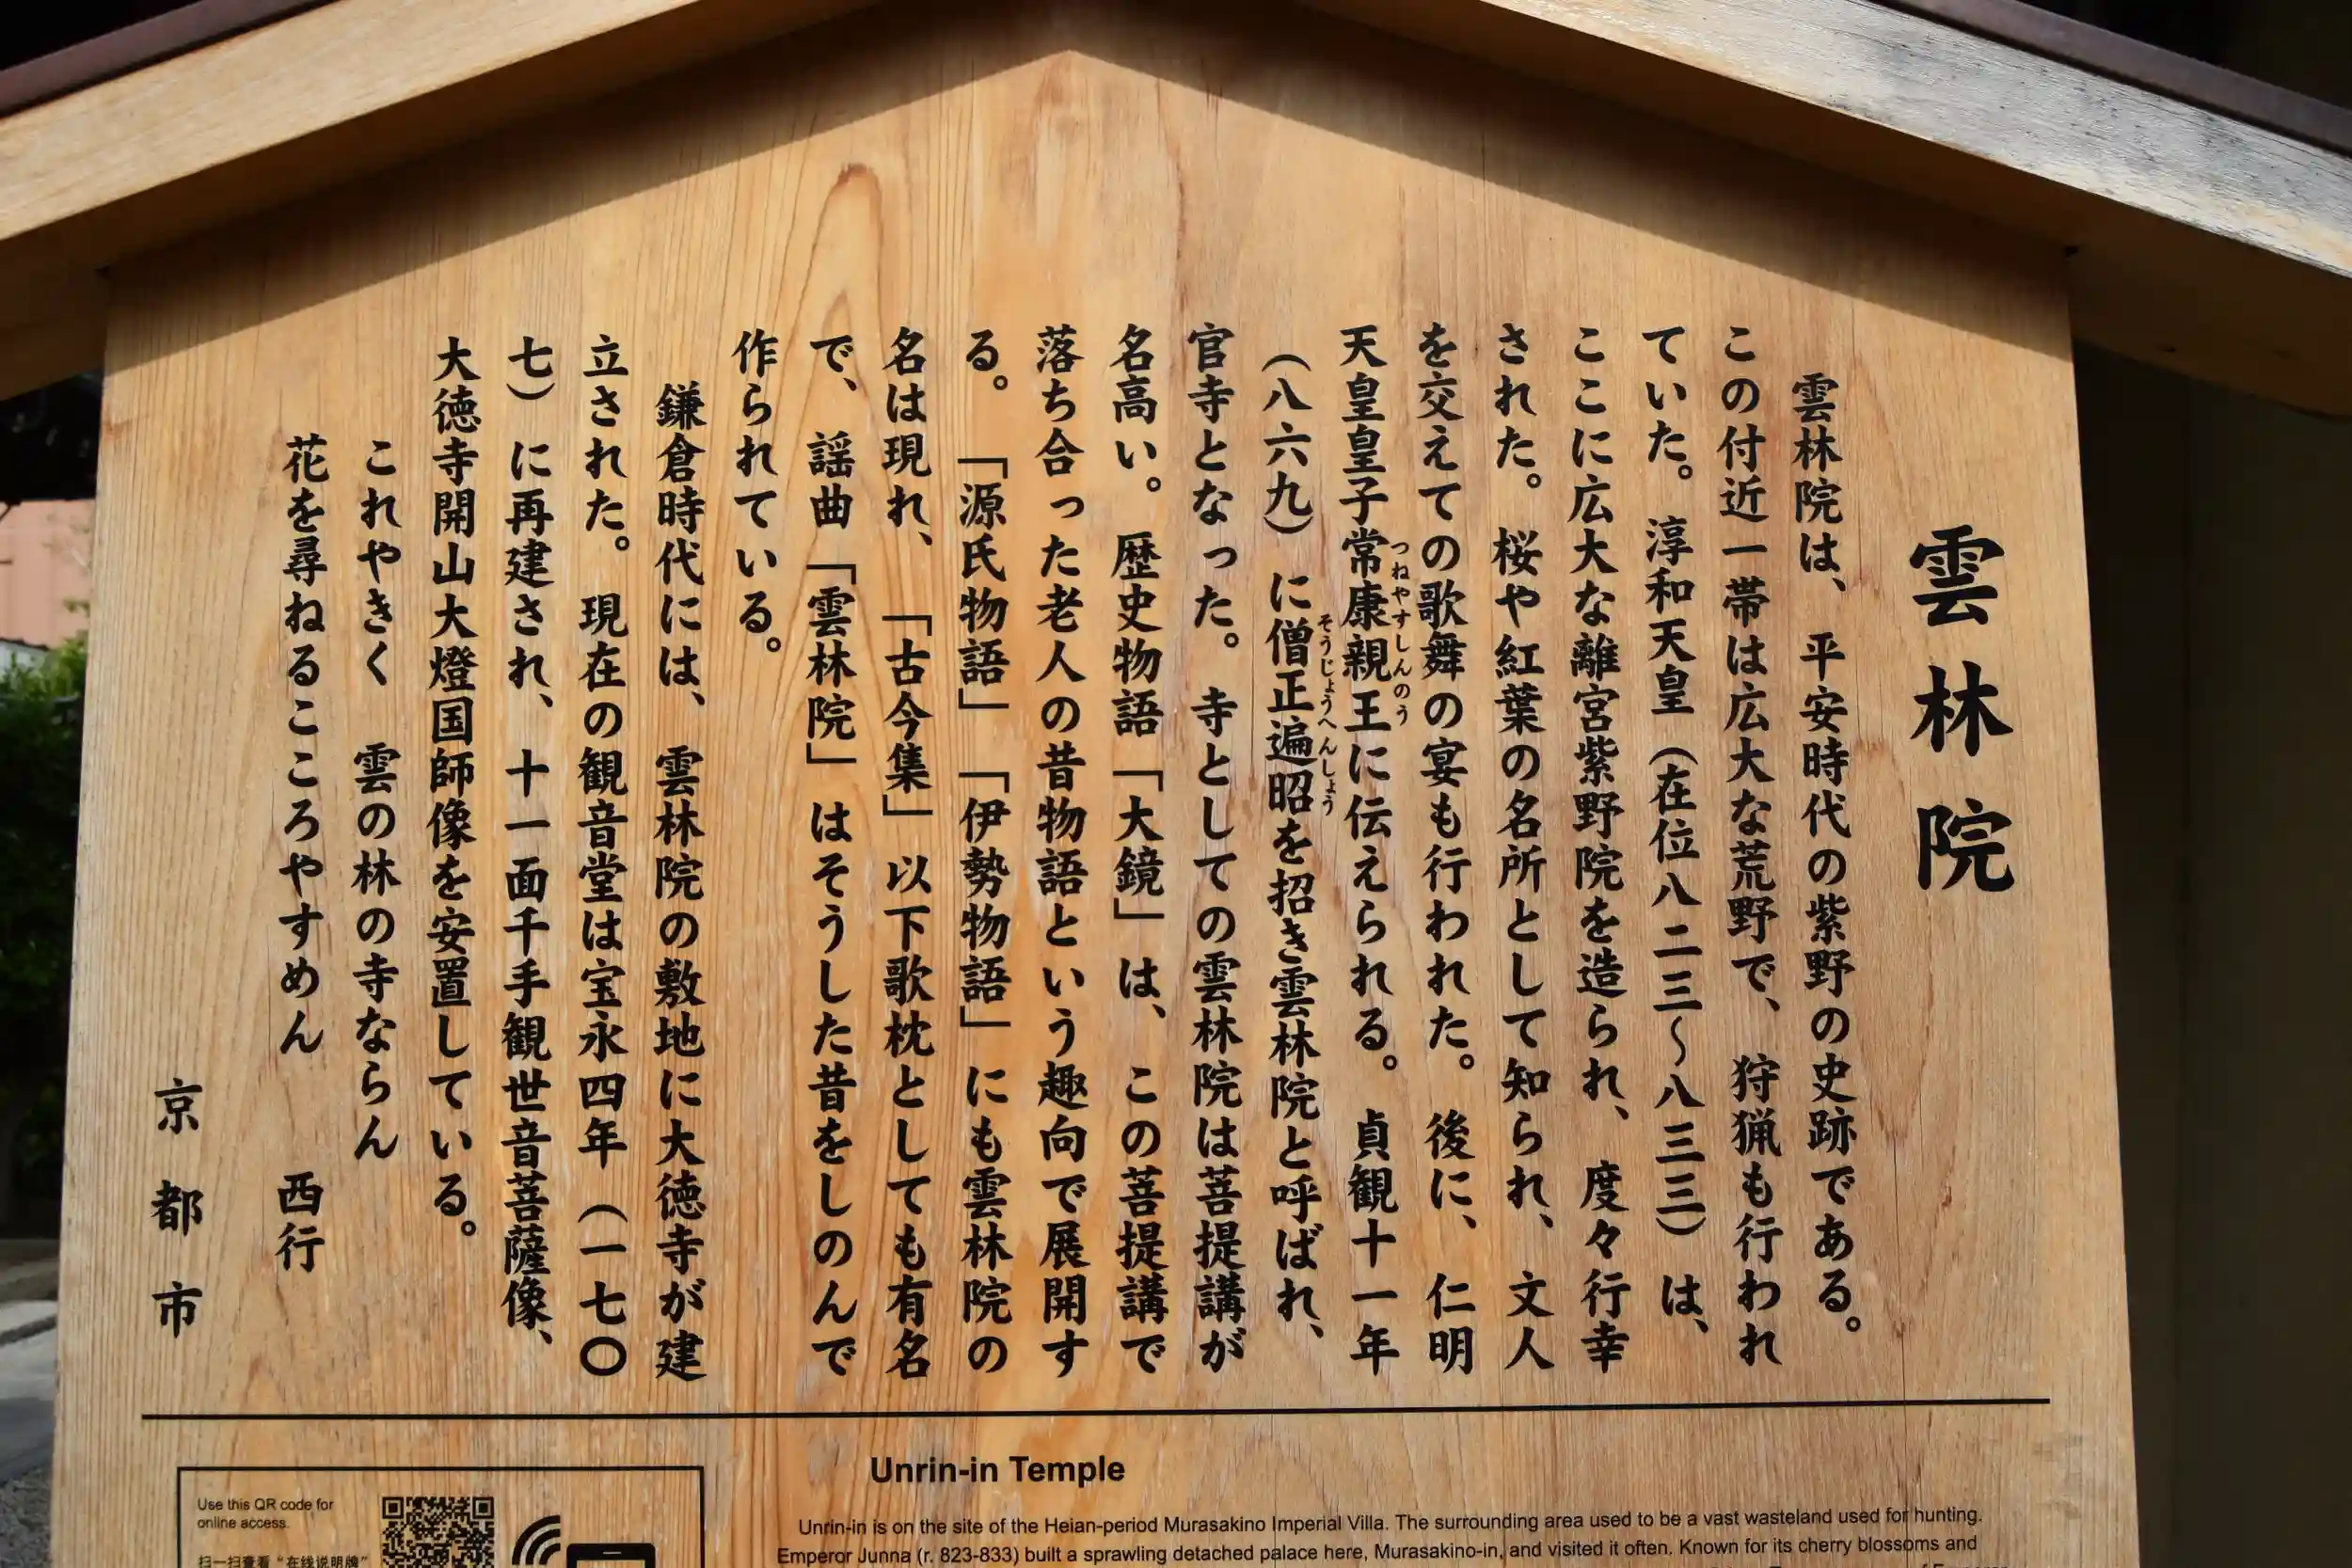 雲林院
雲林院は、平安時代の紫野の史跡である。
この付近一帯は広大な荒野で、狩猟も行われ
ていた。淳和天皇（在位八二三〜八三三）は、
ここに広大な離宮紫野院を造られ、度々行幸
された。桜や紅葉の名所として知られ、文人
を交えての歌舞の宴も行われた。後に、仁明
天皇皇子常康親王に伝えられる。貞観十一年
つねやすしんのう
（八六九）に僧正遍昭を招き雲林院と呼ばれ、
そうじょうへんしょう
官寺となった。寺としての雲林院は菩提講が
名高い。歴史物語「大鏡」は、この菩提講で
落ち合った老人の昔物語という趣向で展開す
る。「源氏物語」「伊勢物語」にも雲林院の
名は現れ、「古今集」以下歌枕としても有名
で、謡曲「雲林院」はそうした昔をしのんで
作られている。
鎌倉時代には、雲林院の敷地に大徳寺が建
立された。現在の観音堂は宝永四年（一七〇
七）に再建され、十一面千手観世音菩薩像、
大徳寺開山大燈国師像を安置している。
これやきく　雲の林の寺ならん
花を尋ねるこころやすめん　西行
京都市
Unrin-in Temple
Unrin-in is on the site of the Heian-period Murasakino Imperial Villa. The surrounding area used to be a vast wasteland used for hunting.
Emperor Junna (r. 823-833) built a sprawling detached palace here, Murasakino-in, and visited it often. Known for its cherry blossoms and
Use this QR code for
online access.
扫一扫查看“在线说明牌”